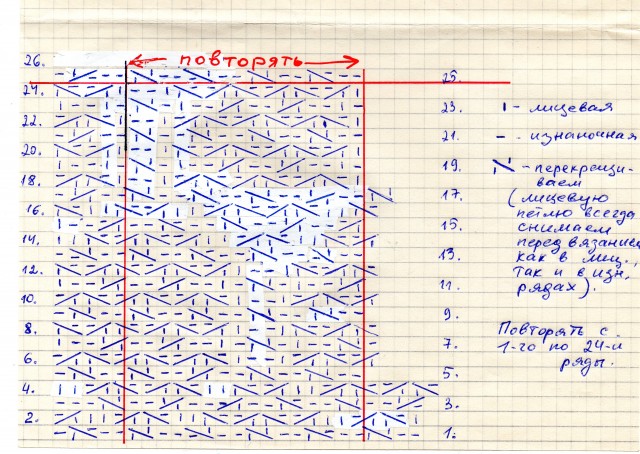 повторять
26.
25.
24.
23.
22.
21.
20.
19.
18.
17.
16.
15.
14.
13.
12.
11.
10.
9.
8.
7.
6.
5.
4.
3.
2.
1.
ı - лицевая
- - изнаночная
- перекрещи-
ваем
(лицевую
петлю всегда
снимаем
перед вязанием
как в лиц.,
так и в изн.
рядах).
Повторять с
1-го по 24-й
ряды.